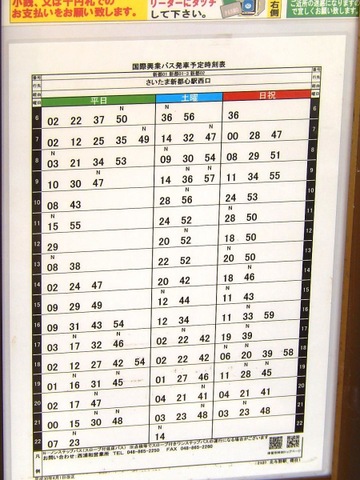 小銭、又は千円札での
お支払いをお願い致します。
リーダーにタッチ
して下さい。
右側
国際興業バス発車予定時刻表
新都01 新都01-3 新都02
さいたま新都心駅西口
平日 土曜 日祝
N N
6 02 22 37 50 36 56 36
N N
7 02 12 25 35 49 14 32 47 00 28 47
N
8 03 21 34 53 09 30 54 08 29 51
N N N
9 10 30 47 14 36 57 11 34 55
N
10 08 43 28 56 24 53
N N
11 15 55 24 52 28 50
N
12 29 20 52 18 50
N N
13 08 38 20 52 20 50
N
14 02 24 47 20 42 18 46
N
15 09 29 49 12 44 11 43
N
16 09 31 43 54 12 34 11 33 59
N
17 03 17 32 46 02 22 42 19 39
N
18 02 12 27 42 54 02 22 42 06 20 39 58
N N N
19 01 16 31 45 01 27 46 11 28 45
N N
20 02 17 47 01 30 48 04 21 51
N N
21 01 15 30 48 03 23 48 03 23 48
N
22 07 23 14
N-ノンステップバス(スロープ付低床バス)
お問い合わせ 西浦和営業所 TEL 048-865-2250 FAX 048-865-2260